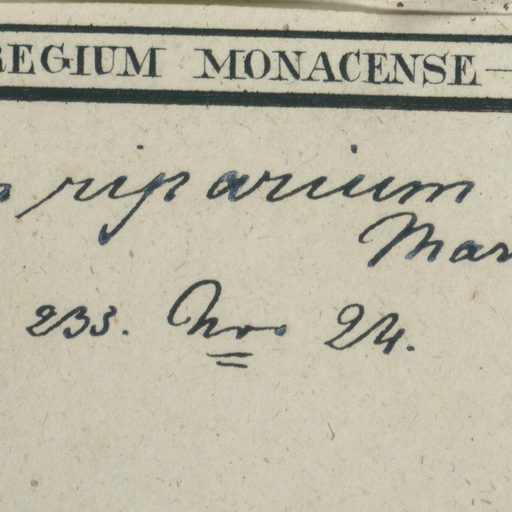 REGIUM MONACENSE
riparium
Mar
233. Nro 24.